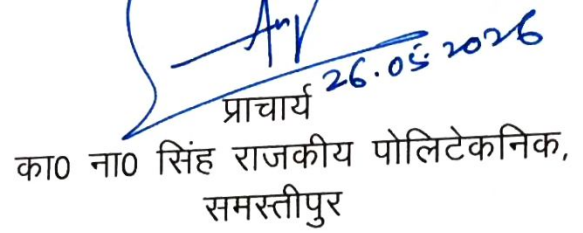 26.05.2026
प्राचार्य
का0 ना0 सिंह राजकीय पोलिटेकनिक,
समस्तीपुर